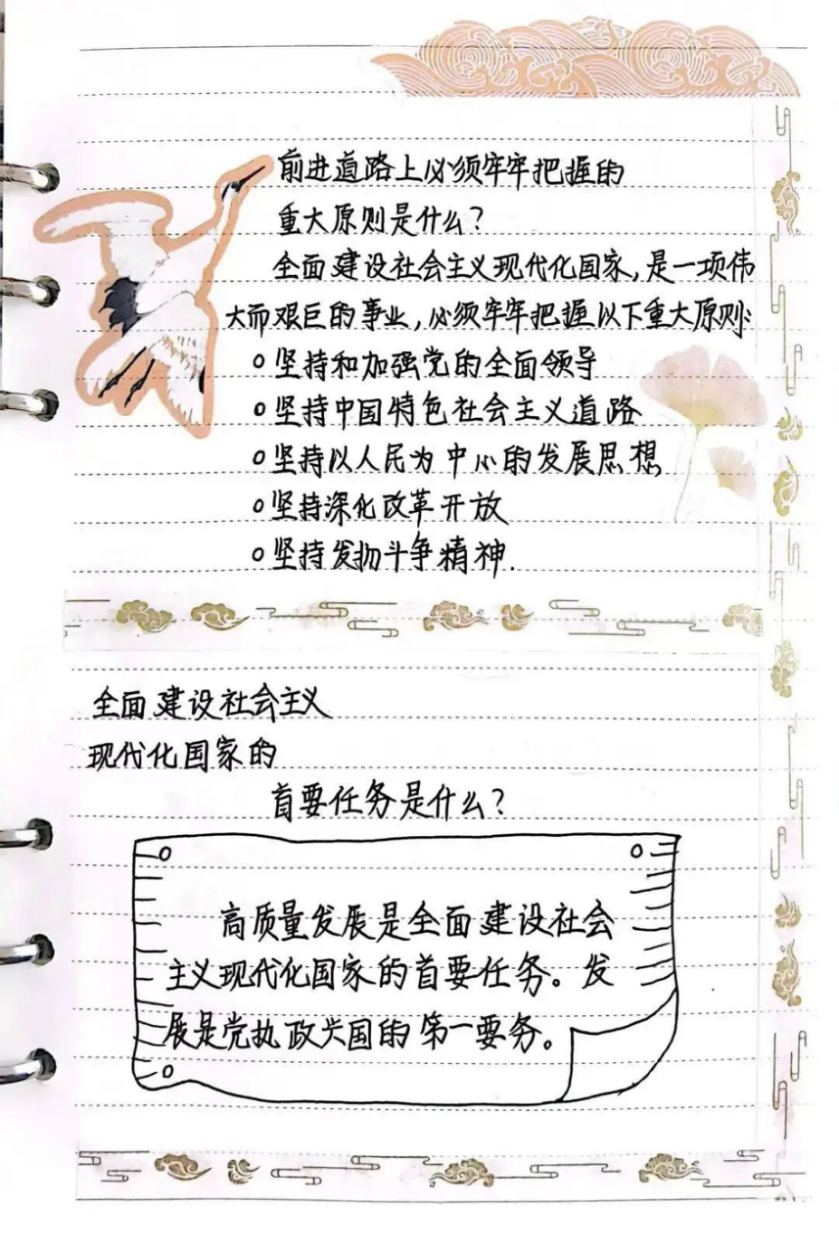 前进道路上必须牢牢把握的
重大原则是什么?
全面建设社会主义现代化国家,是一项伟
大而艰巨的事业,必须牢牢把握以下重大原则:
坚持和加强党的全面领导
坚持中国特色社会主义道路
坚持以人民为中心的发展思想
坚持深化改革开放
坚持发扬斗争精神.
全面建设社会主义
现代化国家的
首要任务是什么?
高质量发展是全面建设社会
主义现代化国家的首要任务。发
展是党执政兴国的第一要务。